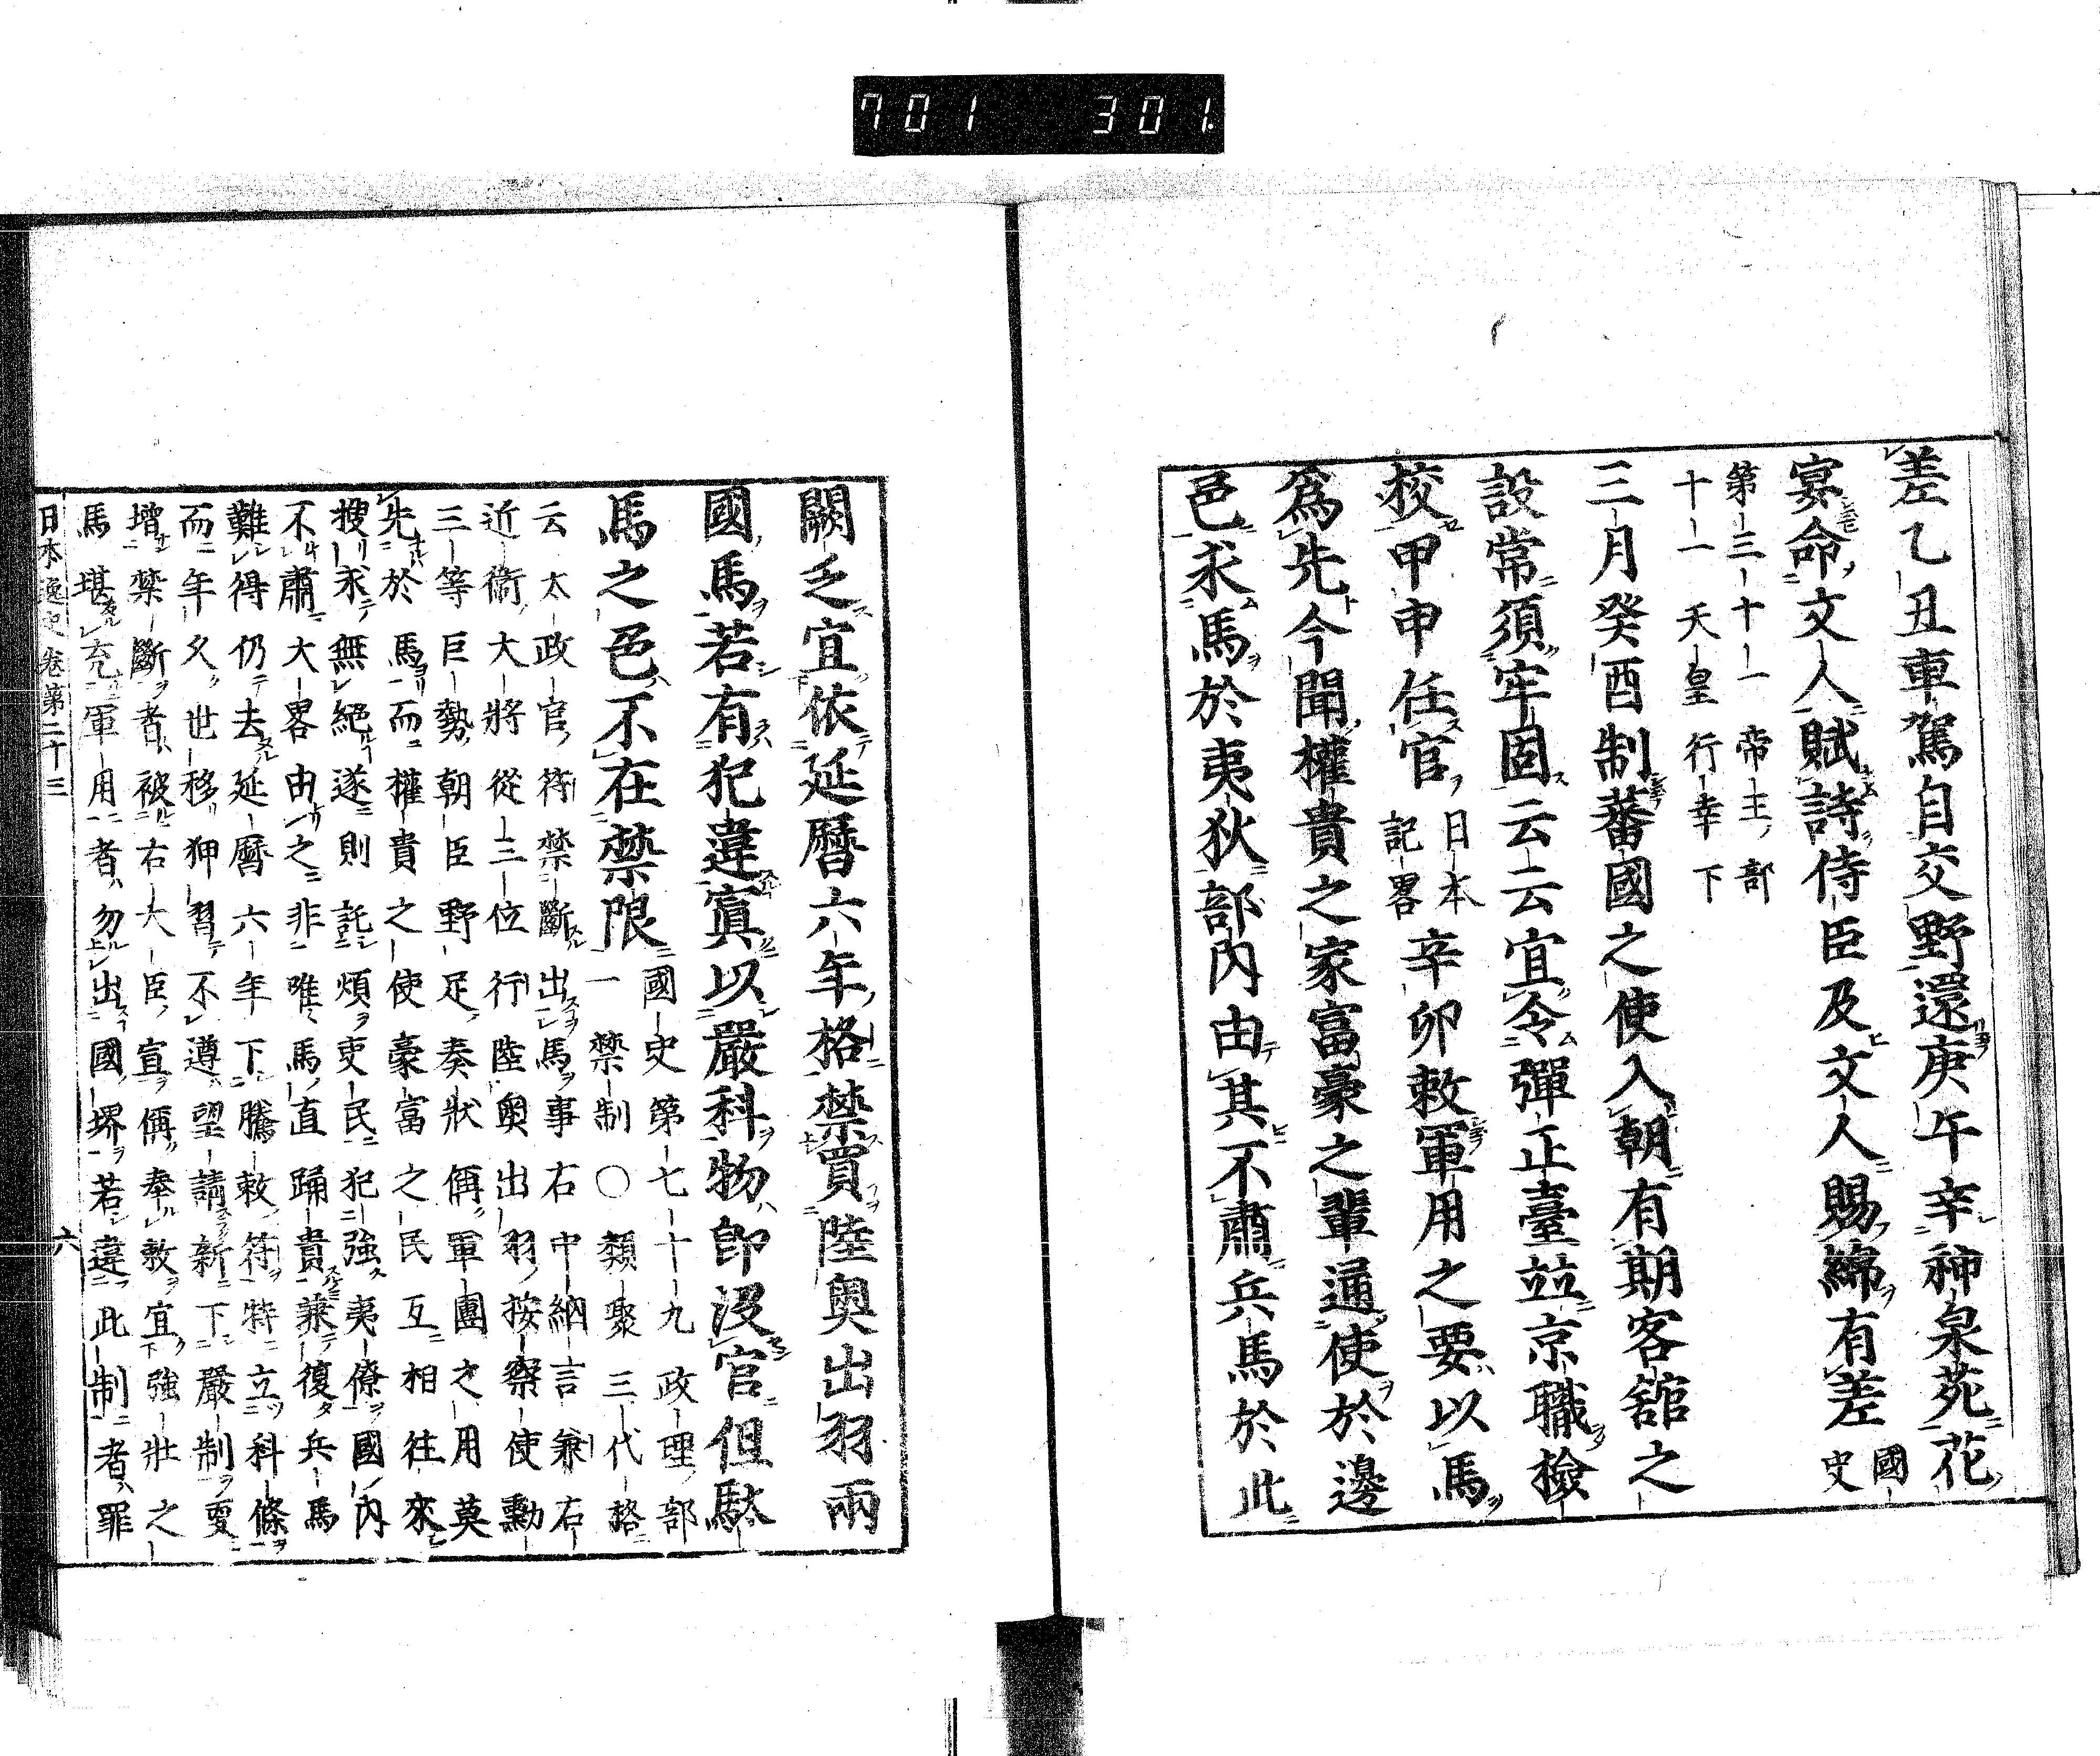 701 301
差乙丑車駕自交野還庚午辛神泉苑花
宴命文人賦詩侍臣及文人賜綿有差 國史
第三十一 帝王部
十一 天皇行幸下
三月癸酉制蕃國之使入朝有期客舘之
設常須牢固云云宜令彈正臺竝京職檢
校甲申任官 日本記畧 辛卯敕軍用之要以馬
爲先今聞權貴之家富豪之輩通使於邊
邑求馬於夷狄部內由其不肅兵馬於此
闕乏宜依延曆六年格禁買陸奥出羽兩
國馬若有犯違寘以嚴科物卽沒官但駄
馬之色不在禁限 國史第七十九政理部
一禁制〇類聚三代格
云太政官符禁斷出馬事右中納言兼右
近衞大將從三位行陸奥出羽按察使勳
三等巨勢朝臣野足奏狀偁軍團之用莫
先於馬而權貴之使豪富之民互相往來
搜求無絕遂則託煩吏民犯強夷僚國內
不肅大畧由之非唯馬直踊貴兼復兵馬
難得仍去延曆六年下騰敕符特立科條
而年久世移狎習不遵望請新下嚴制更
增禁斷者被右大臣宣偁奉敕宜強壯之
馬堪充軍用者勿出國堺若違此制者罪
日本逸史卷第二十三 六